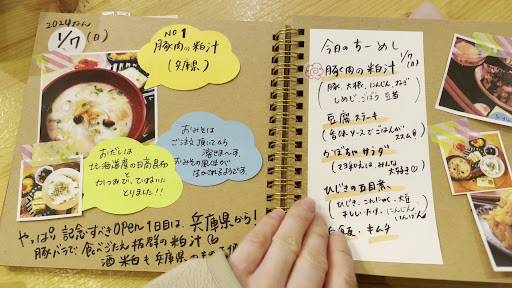 2024ねん
1/7(日)
NO 1
豚肉の粕汁
(兵庫県)
おだしは
北海道産の日高昆布
と
かつおで、ていねいに
とりました!!
おみそは
ご注文頂いてから
溶きます。
おみその風味が
やっぱり記念すべきOpen1日目は、兵庫県から!
豚バラで食べごたえ抜群の粕汁
酒粕も兵庫県の
今日のちーめし
1/7(日)
豚肉の粕汁
(豚、大根、にんじん、ネギ
しめじ、ごぼう、豆苗
豆腐ステーキ
(旨味ソースでごはんが
ススム
かぼちゃサラダ
(マヨ和えは、みんな
大好き
ひじきの五目煮
(ひじき、こんにゃく、大豆
干ししいたけ、にんじん
いんげん)
キムチ